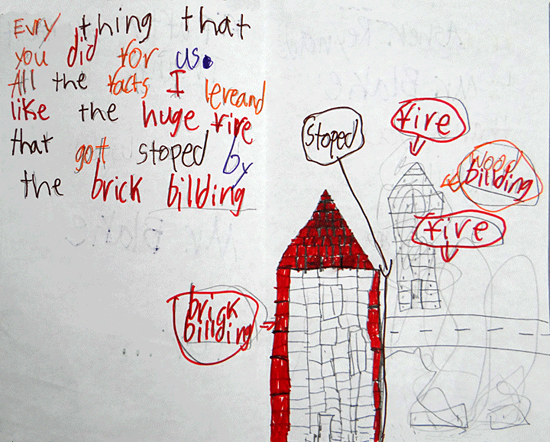 Evry thing that
you did for us.
All the facts I lereand
like the huge fire
that got stoped by
the brick bilding
Stoped
fire
wood
bilding
fire
brick
bilding